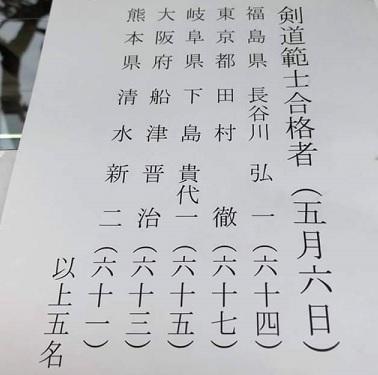 剣道範士合格者（五月六日）
福島県 長谷川 弘 一（六十四）
東京都 田村 徹（六十七）
岐阜県 下島 貴代一（六十五）
大阪府 船津 晋 治（六十三）
熊本県 清水 新 二（六十一）
以上五名